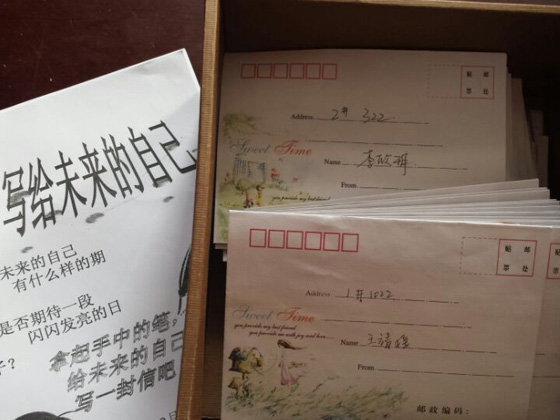 写给未来的自己
未来的自己
有什么样的期
是否期待一段
闪闪发亮的日
子？
拿起手中的笔，
给未来的自己
写一封信吧
贴 邮
票 处
Address 2# 322
Sweet Time
Name
From
you provide my best friend
贴 邮
票 处
Address 1# 1022
Sweet Time
you provide my best friend
you provide me with joy and love
Name
From
邮政编码：